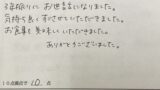 3年振りに お世話になりました。
気持ち良くすごさせていただきました。
お食事も美味しくいただきました。
ありがとうございました。
10点満点で 10 点